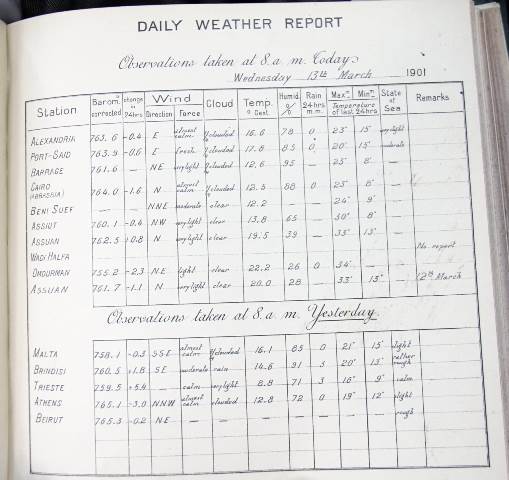 DAILY WEATHER REPORT
Observations taken at 8 a.m. Today
Wednesday 13th March 1901
Station Barom. corrected change 24hrs Wind Direction Force Cloud Temp. Cent. Humid. % Rain 24hrs m.m. Maxm. Minm. Temperature of last 24hrs State of Sea Remarks
ALEXANDRIA 763.6 -0.4 E almost calm clouded 16.6 78 0 23° 15° very light
PORT-SAID 763.9 -0.6 E fresh clouded 17.8 85 0 20° 15° moderate
BARRAGE 761.6 — NE very light clouded 12.6 95 — 25° 8° —
CAIRO (ABBASSIA) 764.0 -1.6 N almost calm clouded 12.5 88 0 25° 8° —
BENI-SUEF — — NNE moderate clear 12.2 — — 24° 9° —
ASSIOT 760.1 -0.4 NW very light clear 13.8 65 — 30° 8° —
ASSUAN 762.5 +0.8 N very light clear 19.5 39 — 33° 13° —
WADI HALFA No report
OMDURMAN 755.2 -2.3 N.E. light clear 22.2 26 0 34° — —
ASSUAN 761.7 -1.1 N very light clear 20.0 28 — 33° 13° — 12th March
Observations taken at 8 a.m. Yesterday.
MALTA 758.1 -0.3 SSE almost calm clouded 16.1 85 0 21° 15° light
BRINDISI 760.5 +1.8 SE moderate rain 14.6 91 3 20° 13° rather rough
TRIESTE 759.5 +5.4 — calm very light 8.8 71 3 10° 9° calm
ATHENS 765.1 -3.0 NNW almost calm clouded 12.8 72 0 19° 12° light
BEIRUT 765.3 -0.2 NE — — — — — — — rough